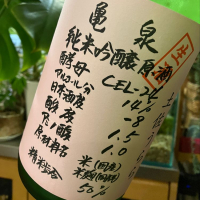 亀泉
純米吟醸原酒
酵母 CEL-24
アルコール分 14
日本酒度 -8
酸度 1.5
アミノ酸 1.0
原材料名 米(国産)
米麹(国産米)
精米歩合 50%